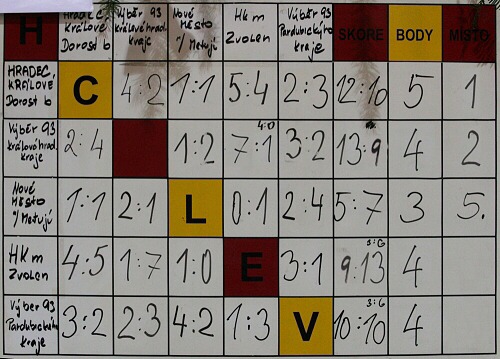 H Hradec Králové Dorost b Výběr 93 královéhrad. kraje Nové Město n/Metují HKm Zvolen Výběr 93 Pardubického kraje SKÓRE BODY MÍSTO
HRADEC, KRÁLOVÉ Dorost b C 4:2 1:1 5:4 2:3 12:10 5 1
Výběr 93 Královéhrad. kraje 2:4 1:2 7:1 4:0 3:2 13:9 4 2
Nové Město n/Metují 1:1 2:1 L 0:1 2:4 5:7 3 5.
HKm Zvolen 4:5 1:7 1:0 E 3:1 9:13 4
Výběr 93 Pardubického kraje 3:2 2:3 4:2 1:3 V 10:10 4